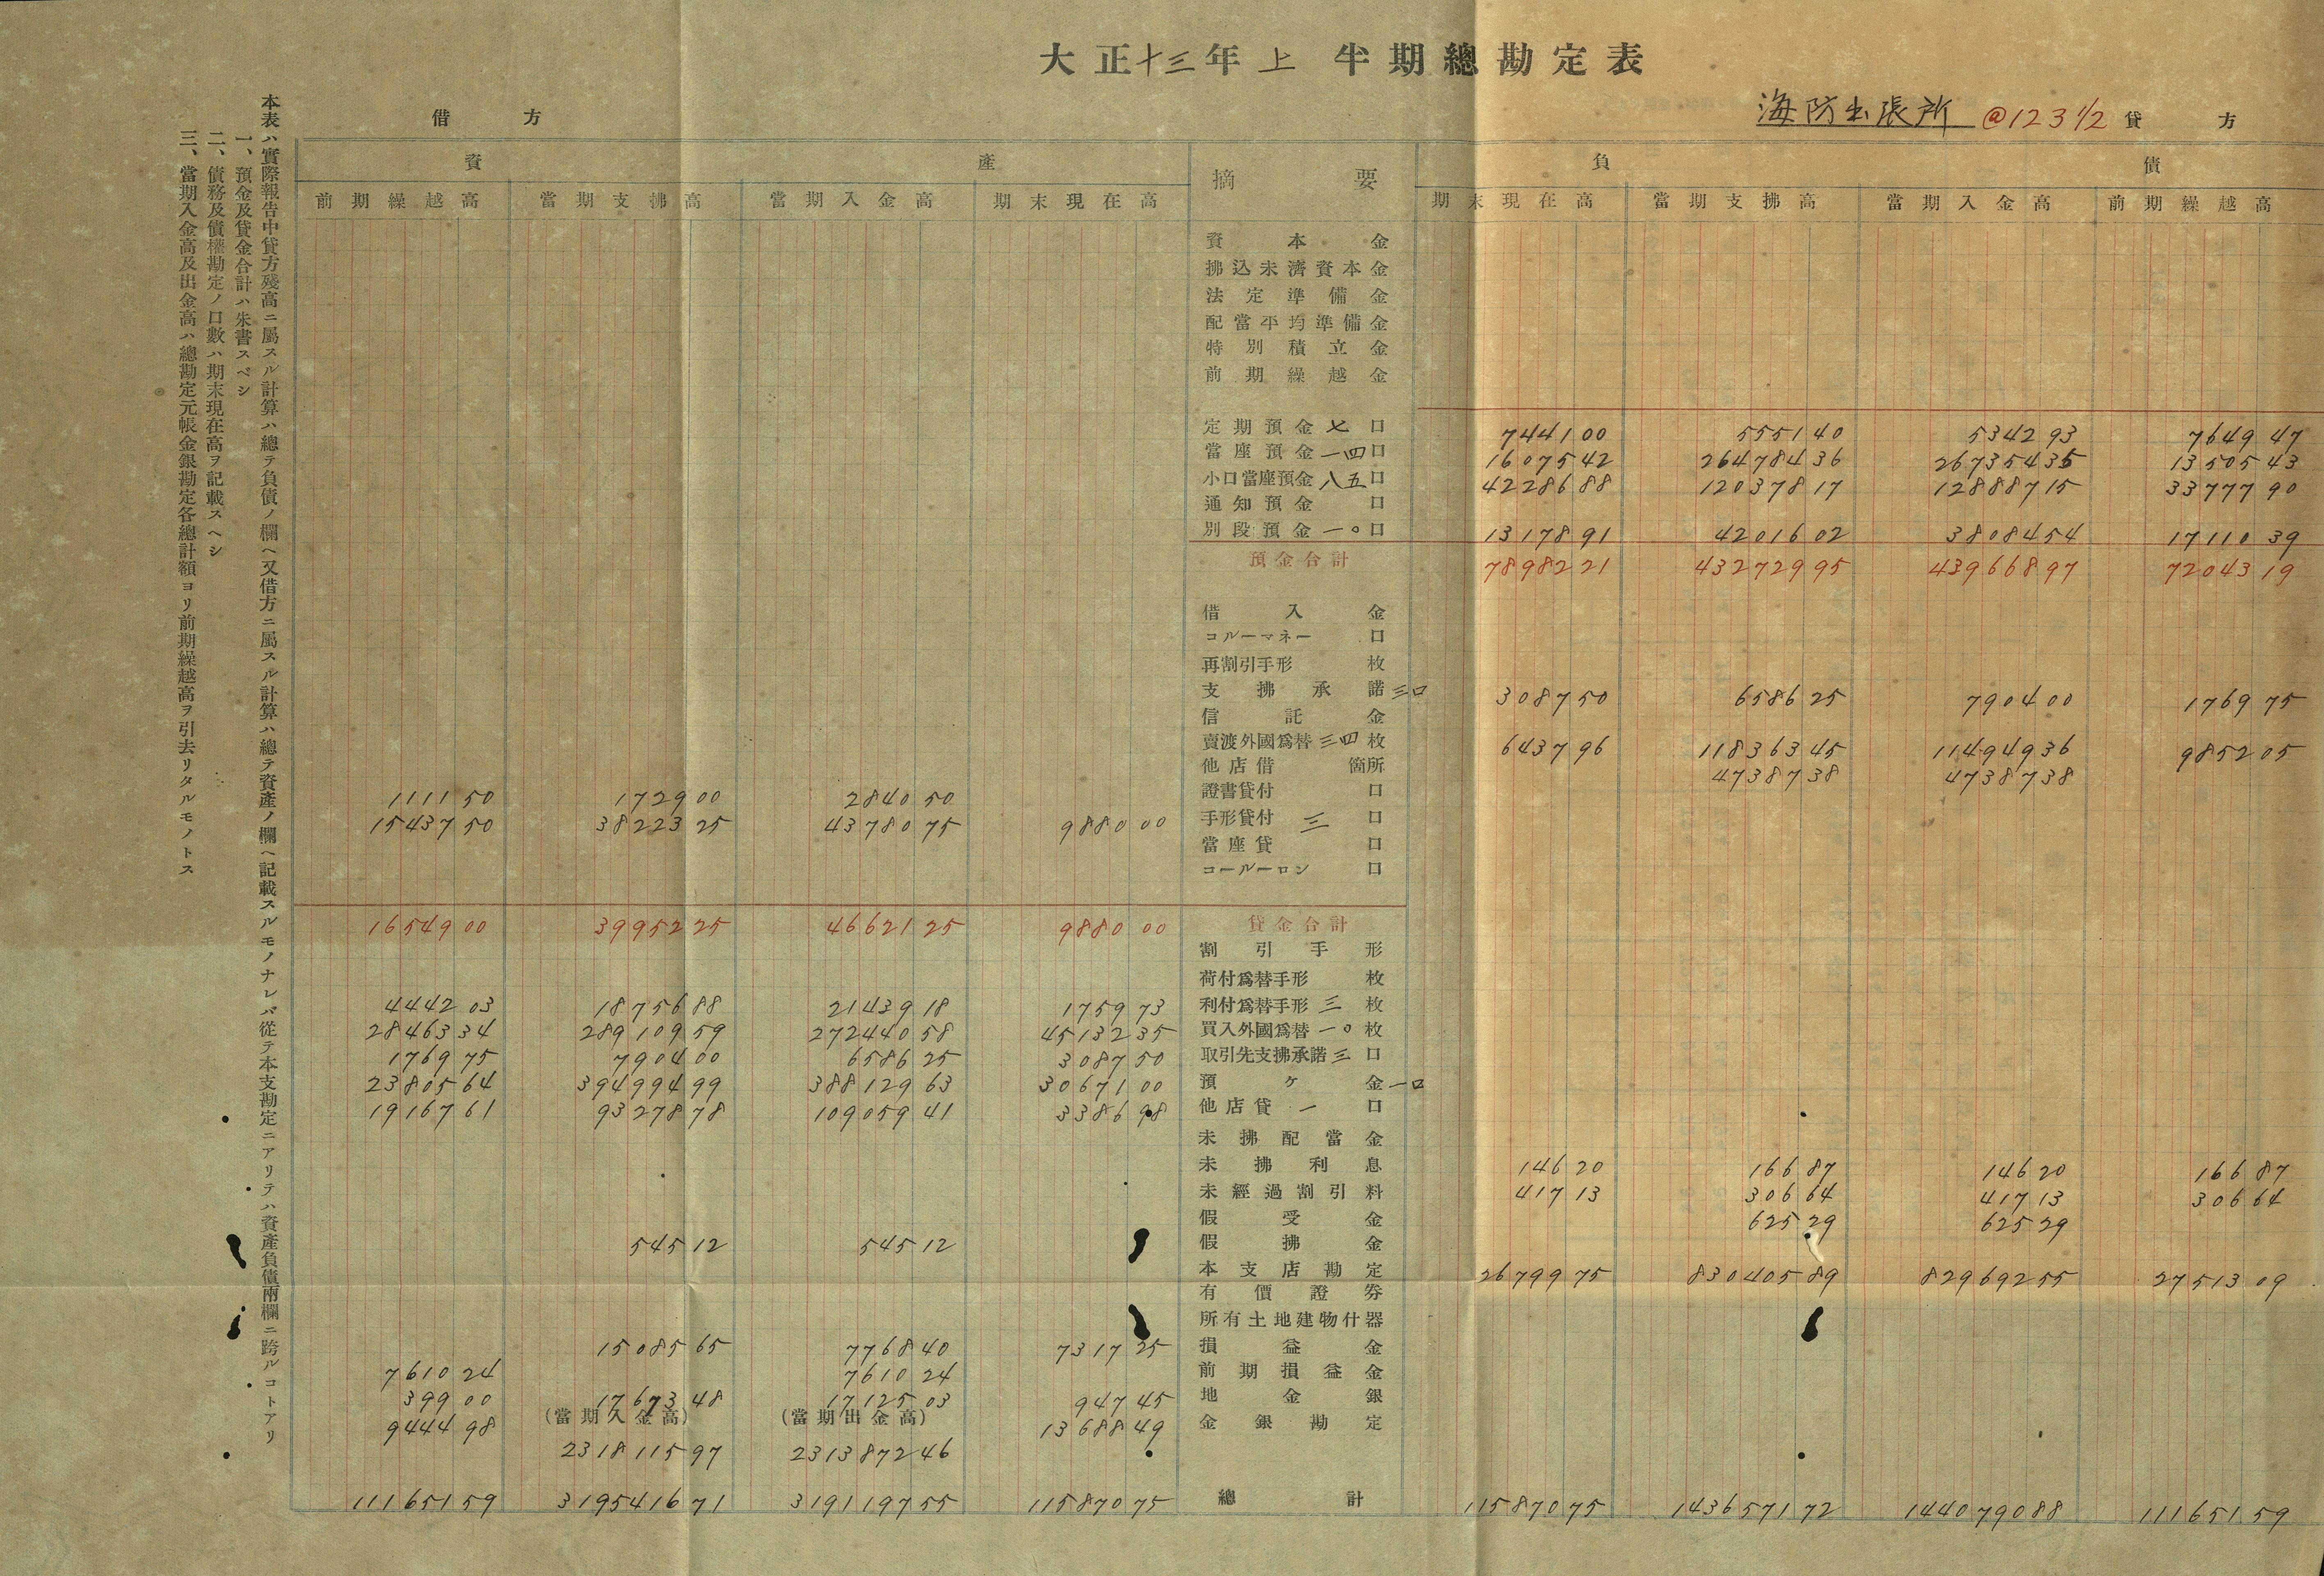 大正十三年上半期總勘定表
海防出張所 @123 1/2
借方 貸方
資產 摘要 負債
前期繰越高 當期支拂高 當期入金高 期末現在高 期末現在高 當期支拂高 當期入金高 前期繰越高
資本金
拂込未濟資本金
法定準備金
配當平均準備金
特別積立金
前期繰越金
定期預金 七口 7441 00 5551 40 5342 93 7649 47
當座預金 一四口 16075 42 264784 36 267354 35 13505 43
小口當座預金 八五口 42286 88 120378 17 128887 15 33777 90
通知預金 口
別段預金 一〇口 13178 91 42016 02 38084 54 17110 39
預金合計 78982 21 432729 95 439668 97 72043 19
借入金
コルーマネー 口
再割引手形 枚
支拂承諾 三口 3087 50 6586 25 7904 00 1769 75
信託金
賣渡外國爲替 三四枚 6437 96 118363 45 114949 36 9852 05
他店借 箇所 47387 38 47387 38
1111 50 1729 00 2840 50 證書貸付 口
15437 50 38223 25 43780 75 9880 00 手形貸付 三口
當座貸 口
コールーロン 口
16549 00 39952 25 46621 25 9880 00 貸金合計
割引手形
荷付爲替手形 枚
4442 03 18756 88 21439 18 1759 73 利付爲替手形 三枚
28463 34 289109 59 272440 58 45132 35 買入外國爲替 一〇枚
1769 75 7904 00 6586 25 3087 50 取引先支拂承諾 三口
23805 64 394994 99 388129 63 30671 00 預ケ金 一口
19167 61 93278 78 109059 41 3386 98 他店貸 一口
未拂配當金
未拂利息 146 20 166 87 146 20 166 87
未經過割引料 417 13 306 64 417 13 306 64
假受金 625 29 625 29
545 12 545 12 假拂金
本支店勘定 26799 75 830405 89 829692 55 27513 09
有價證券
所有土地建物什器
15085 65 7768 40 7317 25 損益金
7610 24 7610 24 前期損益金
399 00 17673 48 17125 03 947 45 地金銀
(當期入金高) (當期出金高)
9444 98 2318115 97 2313872 46 13688 49 金銀勘定
111651 59 3195416 71 3191197 55 115870 75 總計 115870 75 1436571 72 1440790 88 111651 59
本表ハ實際報告中貸方殘高ニ屬スル計算ハ總テ負債ノ欄ヘ又借方ニ屬スル計算ハ總テ資產ノ欄ヘ記載スルモノナレバ從テ本支勘定ニアリテハ資產負債兩欄ニ跨ルコトアリ
一、預金及貸金合計ハ朱書スベシ
二、債務及債權勘定ノ口數ハ期末現在高ヲ記載スヘシ
三、當期入金高及出金高ハ總勘定元帳金銀勘定各總計額ヨリ前期繰越高ヲ引去リタルモノトス